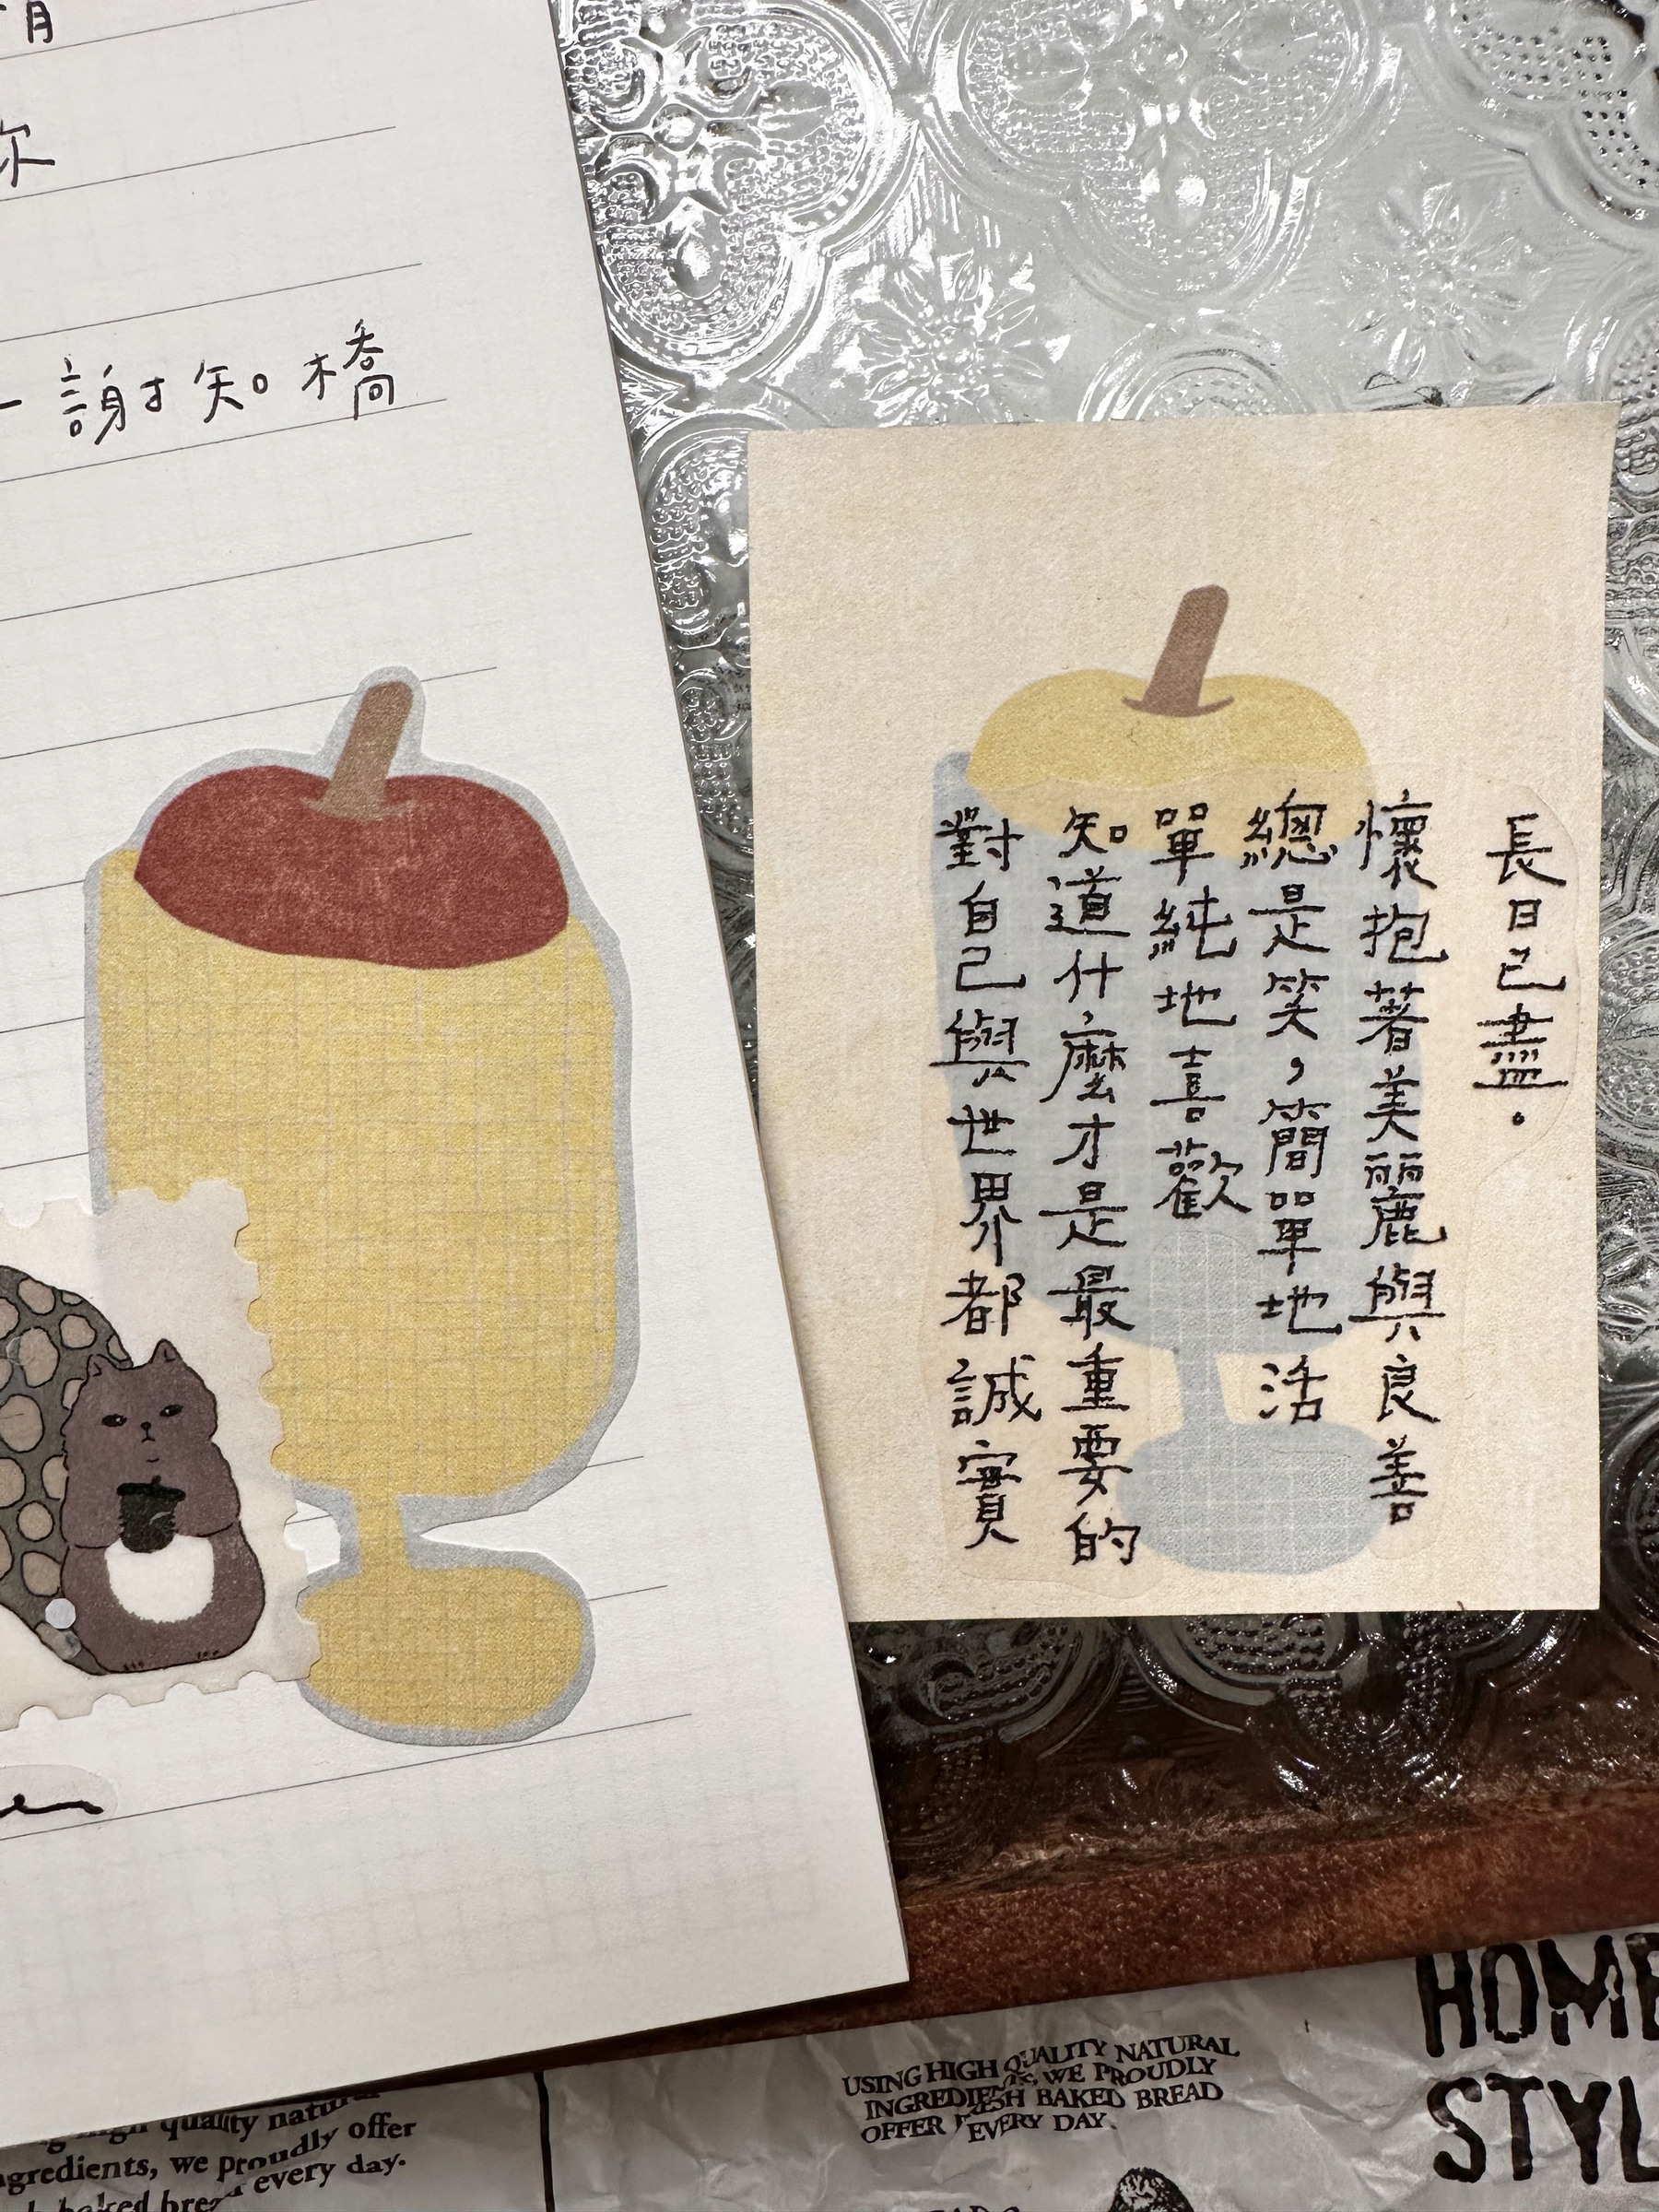 月
你
謝知橋
長日已盡。
懷抱著美麗與良善
總是笑，簡單地活
單純地喜歡
知道什麼才是最重要的
對自己與世界都誠實
HOME
STYL
USING HIGH QUALITY NATURAL
INGREDIENTS, WE PROUDLY
OFFER FRESH BAKED BREAD
EVERY DAY.
high quality natural
ingredients, we proudly offer
baked bread every day.